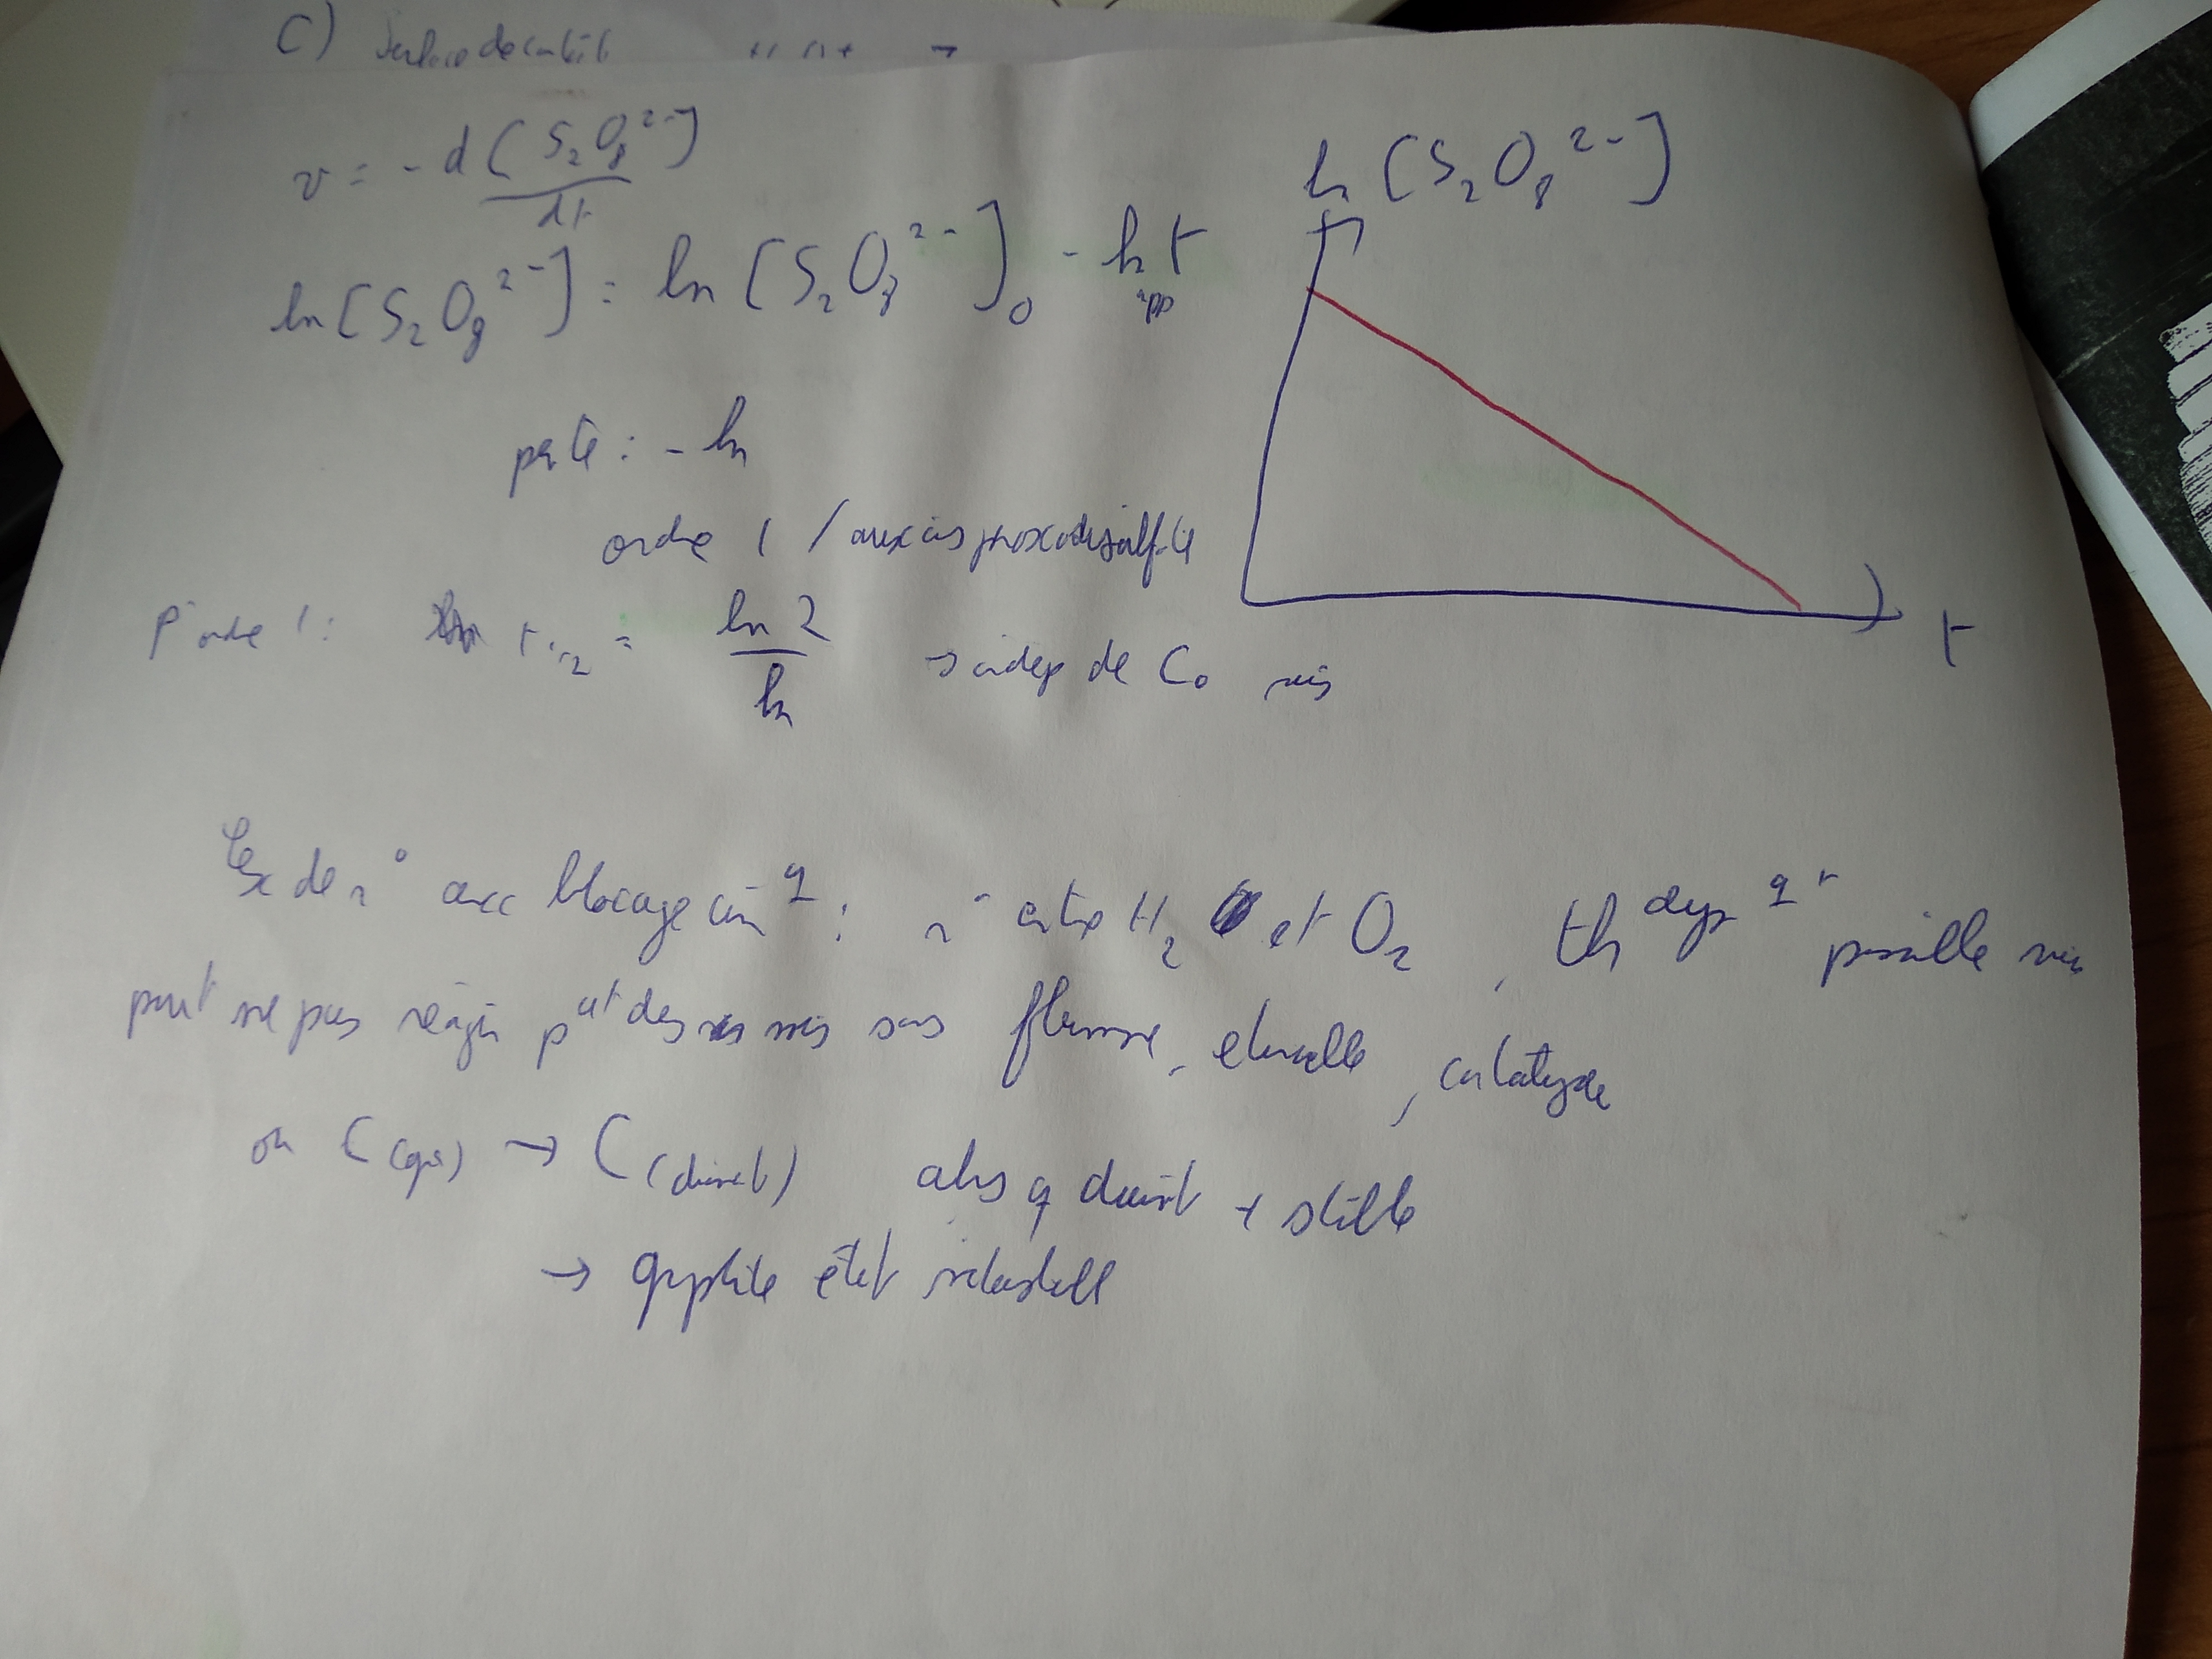 C) Surface de contact
v = - d[S₂O₈²⁻]
dt
ln[S₂O₈²⁻] = ln[S₂O₈²⁻]₀ - k_app t
ln[S₂O₈²⁻]
pente : - k
ordre 1 / aux ions peroxodisulfate
t
pr ordre 1 : t₁/₂ = ln 2 / k → indep de C₀
Ex de r° avec blocage cin^q : r° entre H₂ et O₂, th^dyn q^t possible mais
peut ne pas réagir p^dt des mois sans flamme, etincelle, catalyse
ou C(gr) → C(diamt) alors q diamt + stable
→ graphite état métastable